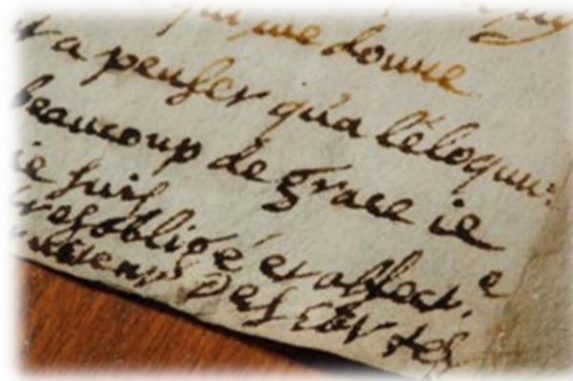 qui me donne
a penser qu'a l'eloquen:
beaucoup de grace ie
ie suis
tresobligé et affect.é
Descartes